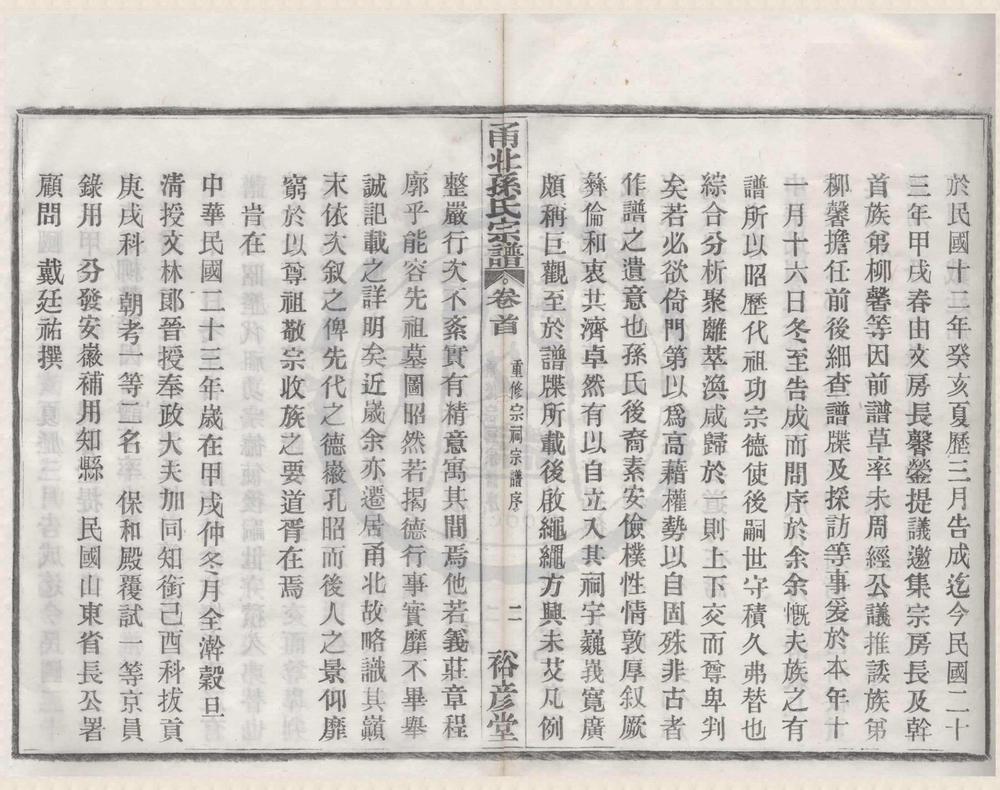 於民國十三年癸亥夏歷三月告成迄今民國二十
三年甲戌春由文房長馨鎣提議邀集宗房長及幹
首族弟柳馨等因前譜草率未周經公議推諉族弟
柳馨擔任前後細查譜牒及採訪等事爰於本年十
一月十六日冬至告成而問序於余余慨夫族之有
譜所以昭歷代祖功宗德使後嗣世守積久弗替也
綜合分析聚離萃渙咸歸於一道則上下交而尊卑判
矣若必欲倚門第以爲高藉權勢以自固殊非古者
作譜之遺意也孫氏後裔素安儉樸性情敦厚叙厥
彝倫和衷共濟卓然有以自立入其祠宇巍峩寬廣
頗稱巨觀至於譜牒所載後啟繩繩方興未艾凡例
甬北孫氏宗譜 卷首 重修宗祠宗譜序 二 裕彦堂
整嚴行次不紊實有精意寓其間焉他若義莊章程
廓乎能容先祖墓圖昭然若揭德行事實靡不畢舉
誠記載之詳明矣近歲余亦遷居甬北故略識其巔
末依次叙之俾先代之德徽孔昭而後人之景仰靡
窮於以尊祖敬宗收族之要道胥在焉
肯在
中華民國二十三年歲在甲戌仲冬月全澣穀旦
清授文林郎晉授奉政大夫加同知銜己酉科拔貢
庚戌科 朝考一等二名 保和殿覆試一等京員
錄用 分發安徽補用知縣 民國山東省長公署
顧問 戴廷祐撰